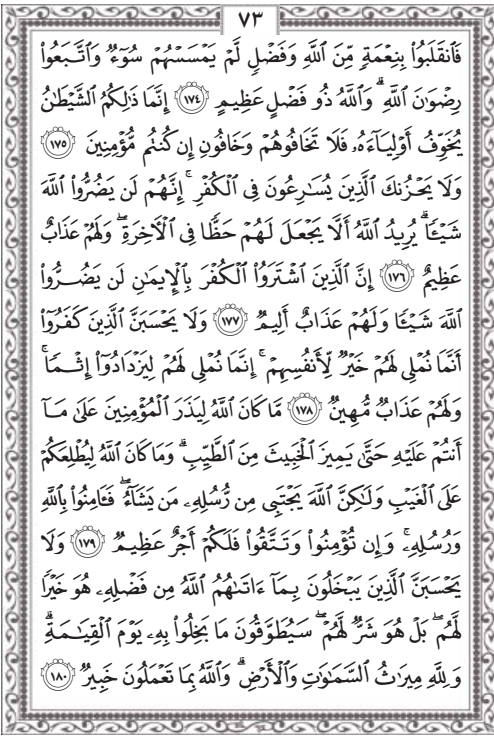 ٧٣
فَٱنقَلَبُواْ بِنِعۡمَةٖ مِّنَ ٱللَّهِ وَفَضۡلٖ لَّمۡ يَمۡسَسۡهُمۡ سُوٓءٞ وَٱتَّبَعُواْ
رِضۡوَٰنَ ٱللَّهِۗ وَٱللَّهُ ذُو فَضۡلٍ عَظِيمٍ ١٧٤ إِنَّمَا ذَٰلِكُمُ ٱلشَّيۡطَٰنُ
يُخَوِّفُ أَوۡلِيَآءَهُۥ فَلَا تَخَافُوهُمۡ وَخَافُونِ إِن كُنتُم مُّؤۡمِنِينَ ١٧٥
وَلَا يَحۡزُنكَ ٱلَّذِينَ يُسَٰرِعُونَ فِي ٱلۡكُفۡرِۚ إِنَّهُمۡ لَن يَضُرُّواْ ٱللَّهَ
شَيۡـٔٗاۗ يُرِيدُ ٱللَّهُ أَلَّا يَجۡعَلَ لَهُمۡ حَظّٗا فِي ٱلۡأٓخِرَةِۖ وَلَهُمۡ عَذَابٌ
عَظِيمٌ ١٧٦ إِنَّ ٱلَّذِينَ ٱشۡتَرَوُاْ ٱلۡكُفۡرَ بِٱلۡإِيمَٰنِ لَن يَضُرُّواْ
ٱللَّهَ شَيۡـٔٗا وَلَهُمۡ عَذَابٌ أَلِيمٞ ١٧٧ وَلَا يَحۡسَبَنَّ ٱلَّذِينَ كَفَرُوٓاْ
أَنَّمَا نُمۡلِي لَهُمۡ خَيۡرٞ لِّأَنفُسِهِمۡۚ إِنَّمَا نُمۡلِي لَهُمۡ لِيَزۡدَادُوٓاْ إِثۡمٗاۚ
وَلَهُمۡ عَذَابٞ مُّهِينٞ ١٧٨ مَّا كَانَ ٱللَّهُ لِيَذَرَ ٱلۡمُؤۡمِنِينَ عَلَىٰ مَآ
أَنتُمۡ عَلَيۡهِ حَتَّىٰ يَمِيزَ ٱلۡخَبِيثَ مِنَ ٱلطَّيِّبِۗ وَمَا كَانَ ٱللَّهُ لِيُطۡلِعَكُمۡ
عَلَى ٱلۡغَيۡبِ وَلَٰكِنَّ ٱللَّهَ يَجۡتَبِي مِن رُّسُلِهِۦ مَن يَشَآءُۖ فَـَٔامِنُواْ بِٱللَّهِ
وَرُسُلِهِۦۚ وَإِن تُؤۡمِنُواْ وَتَتَّقُواْ فَلَكُمۡ أَجۡرٌ عَظِيمٞ ١٧٩ وَلَا
يَحۡسَبَنَّ ٱلَّذِينَ يَبۡخَلُونَ بِمَآ ءَاتَىٰهُمُ ٱللَّهُ مِن فَضۡلِهِۦ هُوَ خَيۡرٗا
لَّهُمۖ بَلۡ هُوَ شَرّٞ لَّهُمۡۖ سَيُطَوَّقُونَ مَا بَخِلُواْ بِهِۦ يَوۡمَ ٱلۡقِيَٰمَةِۗ
وَلِلَّهِ مِيرَٰثُ ٱلسَّمَٰوَٰتِ وَٱلۡأَرۡضِۗ وَٱللَّهُ بِمَا تَعۡمَلُونَ خَبِيرٞ ١٨٠